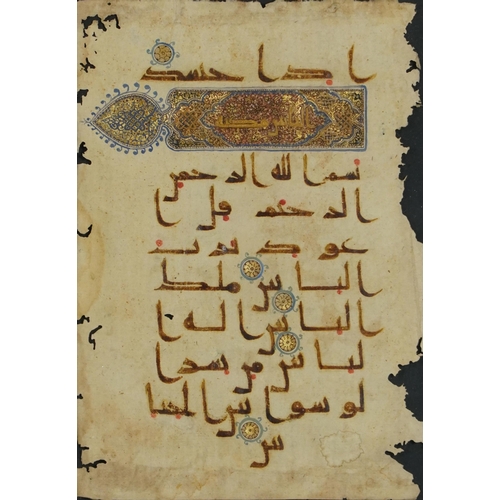 اذا حسد
بسم الله الرحمن
الرحيم قل ا
عوذ برب
الناس ملك
الناس اله ا
لناس من شر ا
لوسواس الخنا
س